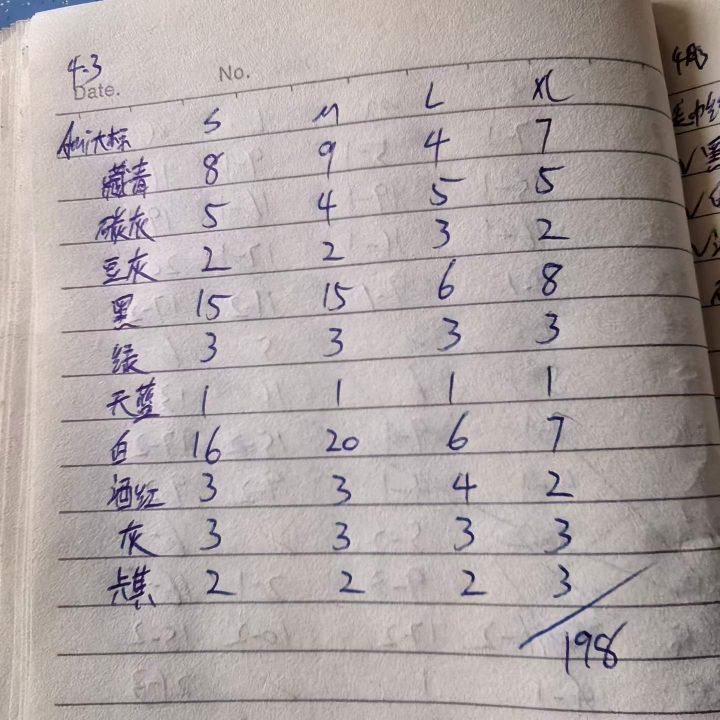 4.3
Date.
No.
S M L XL
Ami大标
藏青 8 9 4 7
碳灰 5 4 5 5
豆灰 2 2 3 2
黑 15 15 6 8
绿 3 3 3 3
天蓝 1 1 1 1
白 16 20 6 7
酒红 3 3 4 2
灰 3 3 3 3
卡其 2 2 2 3
198